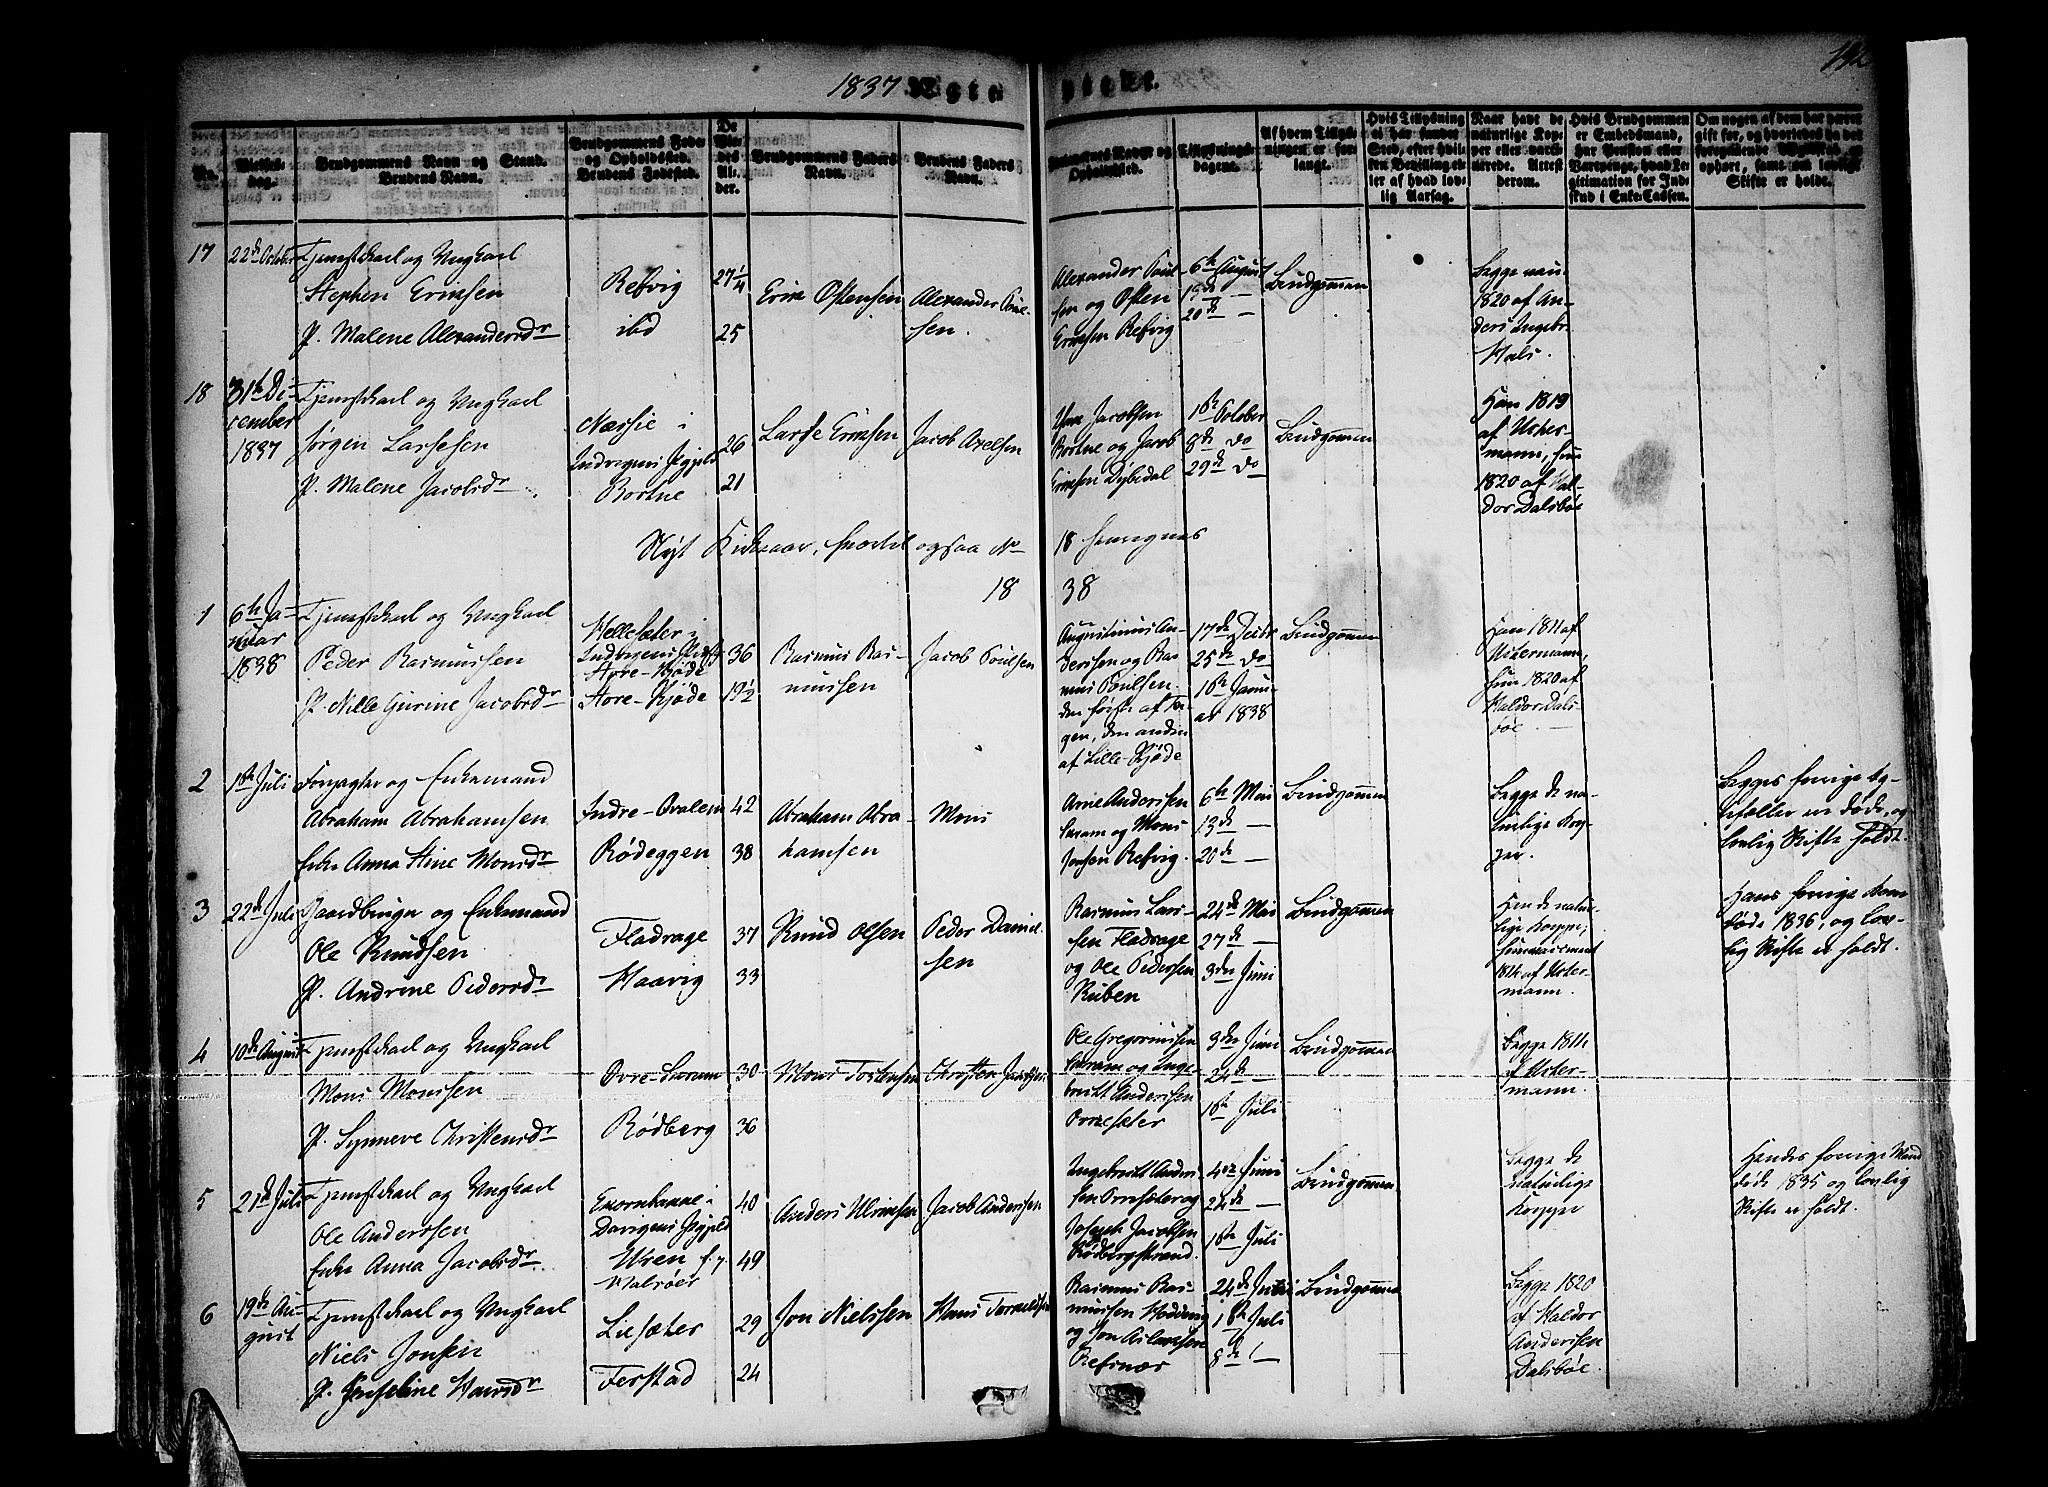 1837 Ægte viede.
No.
Vielses-
dag.
Brudgommens Navn og Stand.
Brudens Navn.
Brudgommens Føde-
og Opholdssted.
Brudens Fødested.
De
Vie-
des
Al-
der.
Brudgommens Faders
Navn.
Brudens Faders
Navn.
Forlovernes Navne og
Opholdssted.
Tillysnings-
dagene.
Af hvem Tillys-
ningen er for-
langt.
Hvis Tillysning
ei har fundet
Sted, efter hvil-
ken Bevilling el-
ler af hvad lov-
lig Aarsag.
Naar have de
naturlige Kop-
per eller vacci-
nerede. Attest
derom.
Hvis Brudgommen
er Embedsmand,
har Pension eller
Vartpenge, hvad Le-
gitimation for Ind-
skud i Enke-Cassen.
Om nogen af dem har været
gift før, og hvorledes da det
foregaaende Ægteskab er
ophørt, samt om lovligt
Skifte er holdt.
17 22de October Tjenestekarl og Ungkarl
Stephen Ericsen
P. Malene Alexandersdr
Refvig
ibd
27 1/4
25
Erik Ostensen
Alexander Poul-
sen.
Alexander Poul-
sen og Osten
Ericsen Refvig
6te August
13de —
20de —
Brudgommen
Begge vac.
1820 af An-
ders Ingebr.
Hals.
18 31te De-
cember
1837
Tjenestekarl og Ungkarl
Jørgen Larsesen
P. Malene Jacobsdr
Næssie i
Indvigens Prgjeld
Bortne
26
21
Larse Ericsen
Jacob Axelsen
Jacobsen
Bortne og Jacob
Ericsen Dybedal
1ste October
8de do
29de do
Brudgommen
Han 1819
af Uster-
mann, hun
1820 af Hal-
dor Dalsbøe
Nyt Kirkeaar, hvortil ogsaa No 18 henregnes
1838
1 6te Ja-
nuar
1838
Tjenestekarl og Ungkarl
Peder Rasmussen
P. Nille Gurine Jacobsdr
Hellesæter i
Indvigens Prgj.
Store-Kjøde
Store-Kjøde
36
19 1/2
Rasmus Ras-
mussen
Jacob Poulsen
Augustinus An-
dersen og Ras-
mus Poulsen.
den første af
den anden
af Lille-Kjøde
17de Decbr
25de do
1ste Janu-
ar 1838
Brudgommen
Han 1811 af
Ustermann,
hun 1820 af
Haldor Dals-
bøe.
2 1ste Juli Forpagter og Enkemand
Abraham Abrahamsen
Enke Anna Stine Monsdr
Indre-Qvalem
Rødeggen
42
38
Abraham Abra-
hamsen
Mons
Arne Andersen
og Mons
Jonsen Refvig.
6te Mai
13de —
20de —
Brudgommen
Begge de na-
turlige Kop-
per.
Begges forrige Æg-
tefæller er døde, og
lovlig Skifte holdt.
3 22de Juli Gaardbruger og Enkemand
Ole Knudsen
P. Andrine Pedersdr
Fladrage
Haavig
37
33
Knud Olsen
Peder Daniel-
sen
Rasmus Lars-
sen Fladrage
og Ole Pedersen
Ruben
24de Mai
27de —
3die Juni
Brudgommen
Han de natur-
lige Kopper,
hun vaccineret
1814 af Uster-
mann.
Hans forrige Kone
døde 1836, og lov-
lig Skifte er holdt.
4 10de August Tjenestekarl og Ungkarl
Mons Monssen
P. Synneve Christensdr
Øvre-
Rødberg
30
36
Mons Tostensen
Christen
Ole Gregoriussen
og Inge-
bricht Andersen
Orresæter
3die Juni
24de
1ste Juli
Brudgommen
Begge 1814
af Uster-
mann.
5 21de Juli Tjenestekarl og Ungkarl
Ole Anderssen
Enke Anna Jacobsdr.
i
Davigens Prgjeld
Uren
Halsøer
40
49
Anders Ulricsen
Jacob Andersen
Ingebricht Ander-
sen Orresæter og
Joseph Jacobsen
Rødbergstrand.
4de Juni
24de
1ste Juli
Brudgommen
Begge de
naturlige
Kopper
Hendes forrige Mand
døde 1835 og lovlig
Skifte er holdt.
6 19de Au-
gust
Tjenestekarl og Ungkarl
Niels Jonsen
P. Hansdr
Liesæter
Ferstad
29
24
Jon Nielssen
Hans
Rasmus Ras-
mussen
og Jon
Refsnær
24de Juni
1ste Juli
8de —
Brudgommen
Begge 1820
af Haldor
Andersen
Dalsbøe.